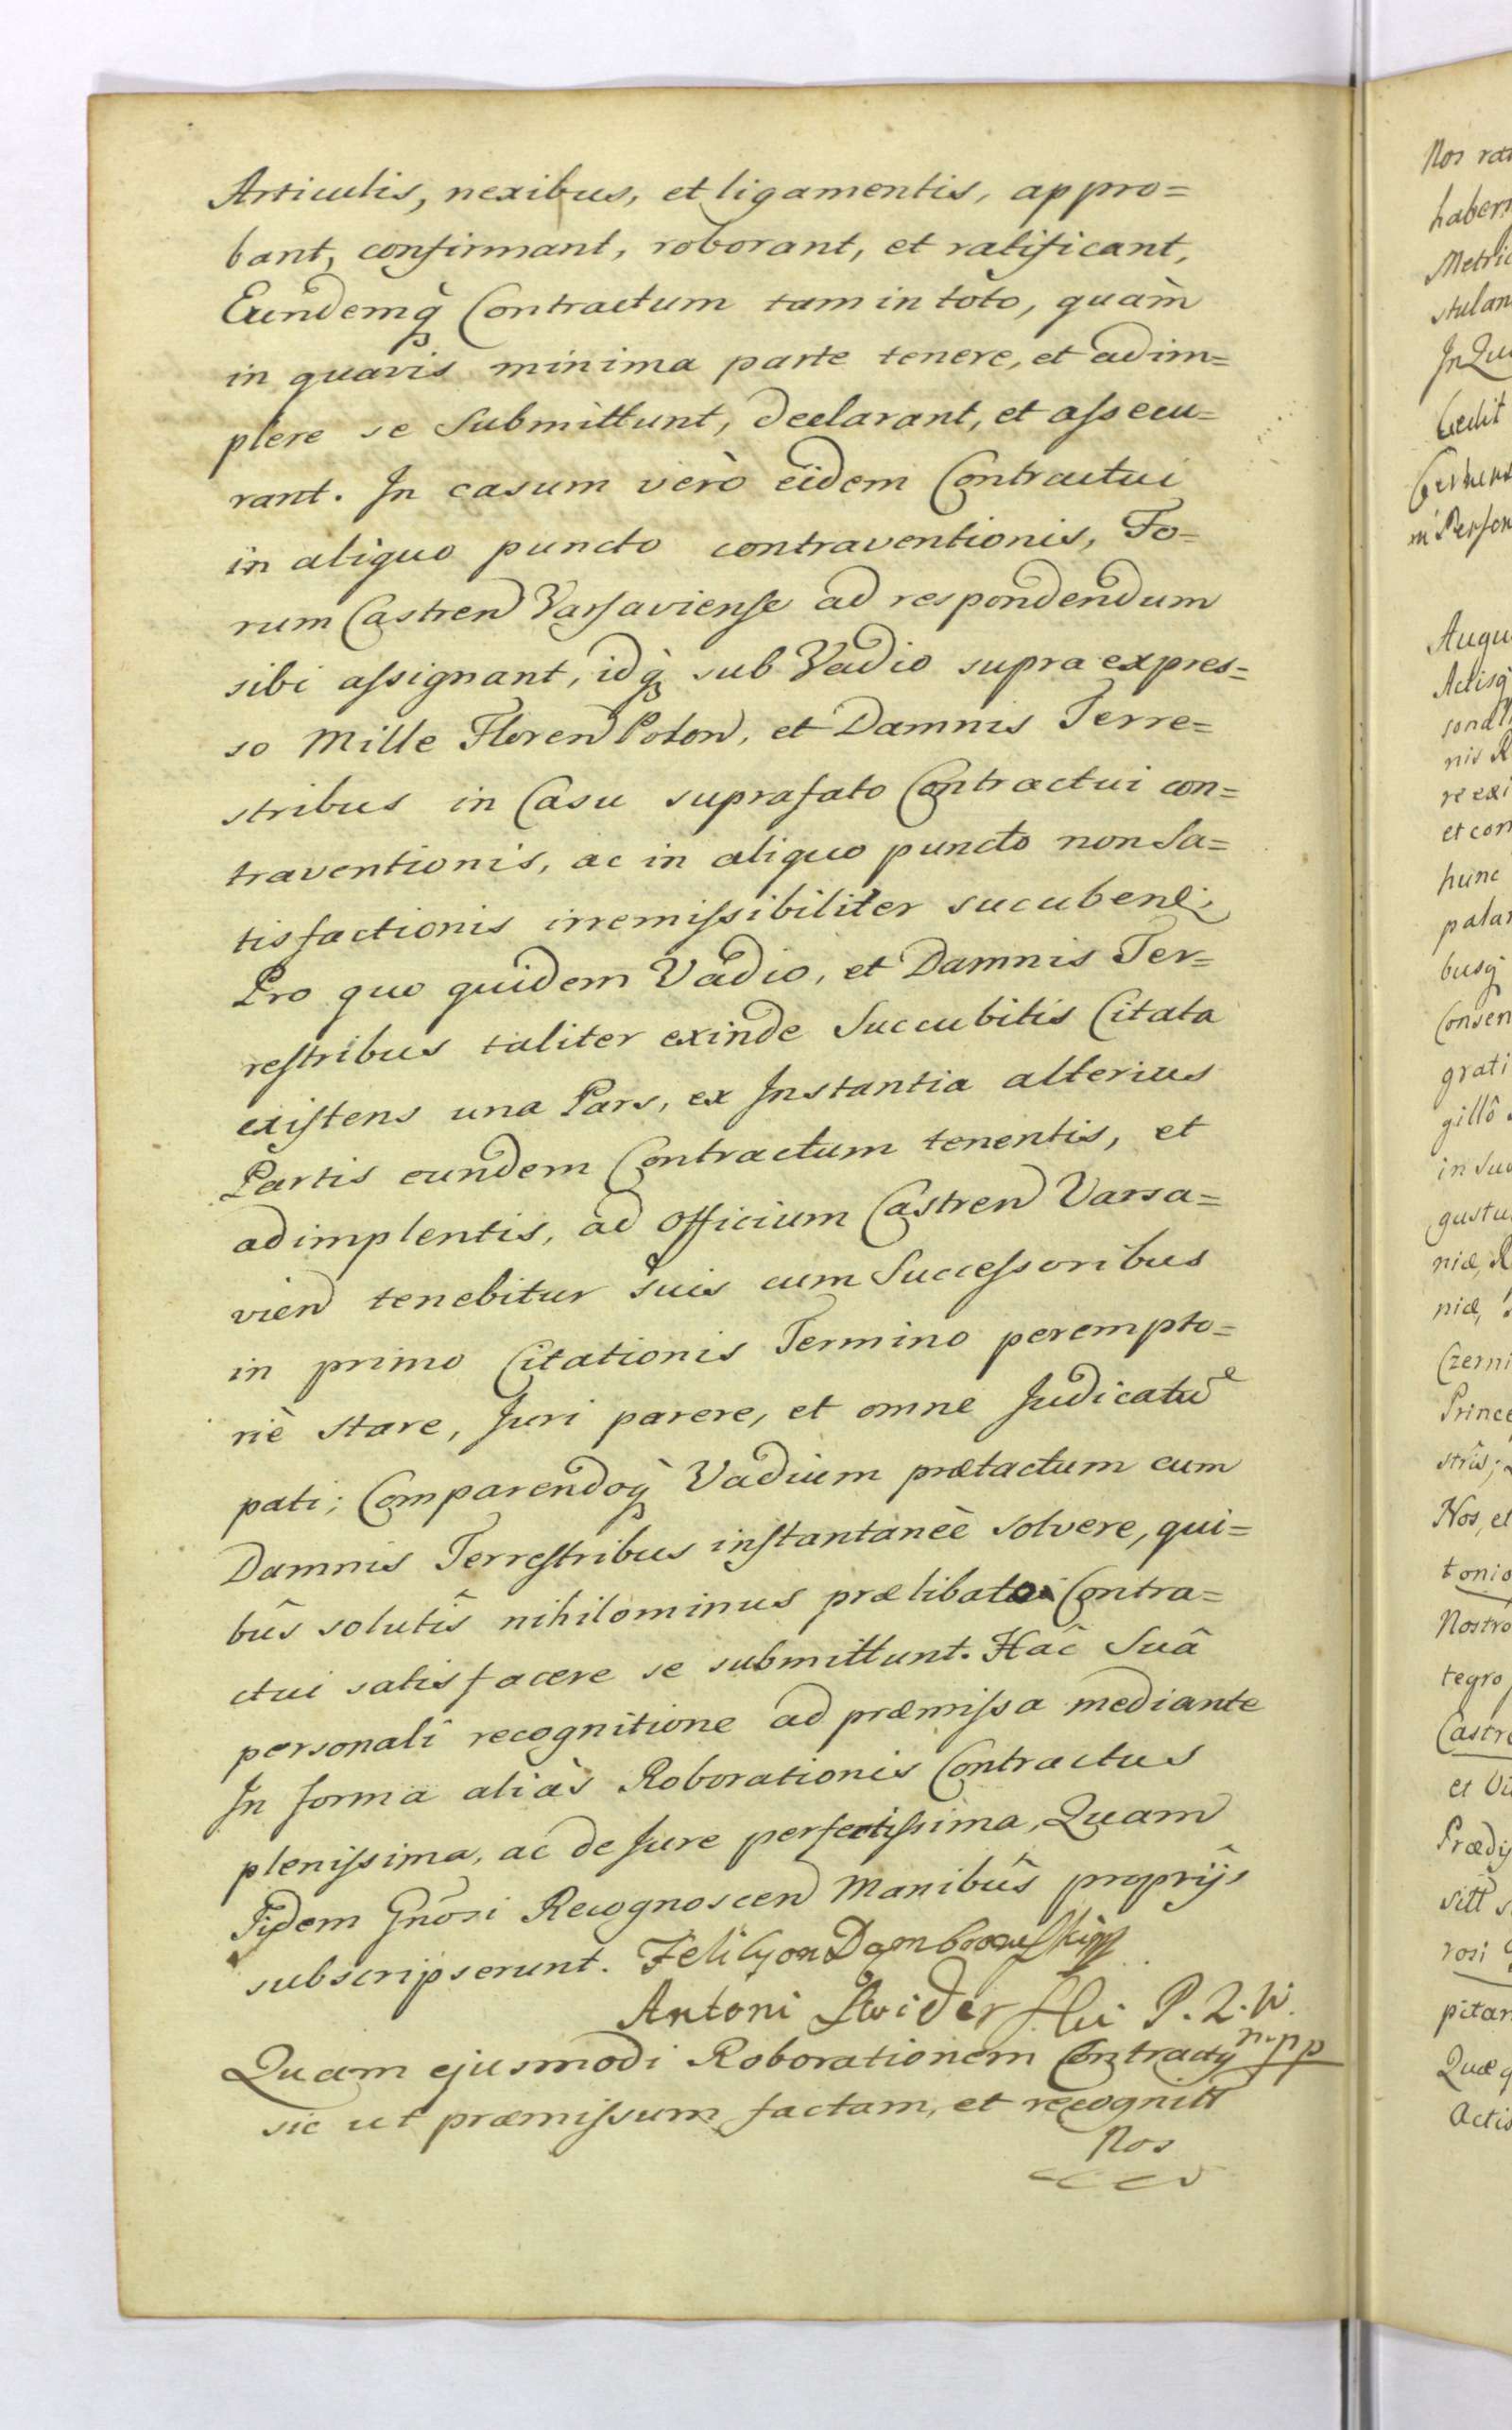 Articulis, nexibus, et ligamentis, appro=
bant, confirmant, roborant, et ratificant,
Eundemq̀ Contractum tam in toto, quàm
in quavis minima parte tenere, et adim=
plere se Submittunt, declarant, et assecu=
rant. In casum verò eidem Contractui
in aliquo puncto contraventionis, Fo=
rum Castren Varsaviense ad respondendum
sibi assignant, idq̀ sub Vadio supra expres=
so Mille Floren Polon, et Damnis Terre=
stribus in Casu suprafato Contractui con=
traventionis, ac in aliquo puncto non Sa=
tisfactionis irremissibiliter sucuben;
Pro quo quidem Vadio, et Damnis Ter=
restribus taliter exinde Succubitis Citata
existens una Pars, ex Instantia alterius
Partis eundem Contractum tenentis, et
adimplentis, ad Officium Castren Varsa=
vien tenebitur suis cum Successoribus
in primo Citationis Termino perempto=
riè stare, Juri parere, et omne Judicatũ
pati; Comparendoq̀ Vadium prætactum cum
Damnis Terrestribus instantaneè solvere, qui=
bûs solutîs nihilominus prælibato Contra=
ctui satisfacere se submittunt. Hâc Suâ
personali recognitione ad præmissa mediante
In forma aliàs Roborationis Contractus
plenissima, ac de Jure perfectissima, Quam
Iidem Gnõsi Recognoscen Manibûs proprijs
subscripserunt. Felicyan Dąmbrowski
Antoni Swiderski P. Z. W.
mpp
Quam ejusmodi Roborationem Contractq
sic ut præmissum factam, et recognitt
Nos
Nos
haben
Metric
stulan
In Qu
m Person
Augu
Actisq
sonal
nis R
re exi
et con
hunc
palan
busq
Consen
grati
gillô
in Su
gustu
niæ, R
niæ,
Czerni
Prince
strîs;
Nos, et
tonio
Nostro
tegro
Castre
et Vi
Prædi
sitt s
rosi
pitan
Quæ q
Actis